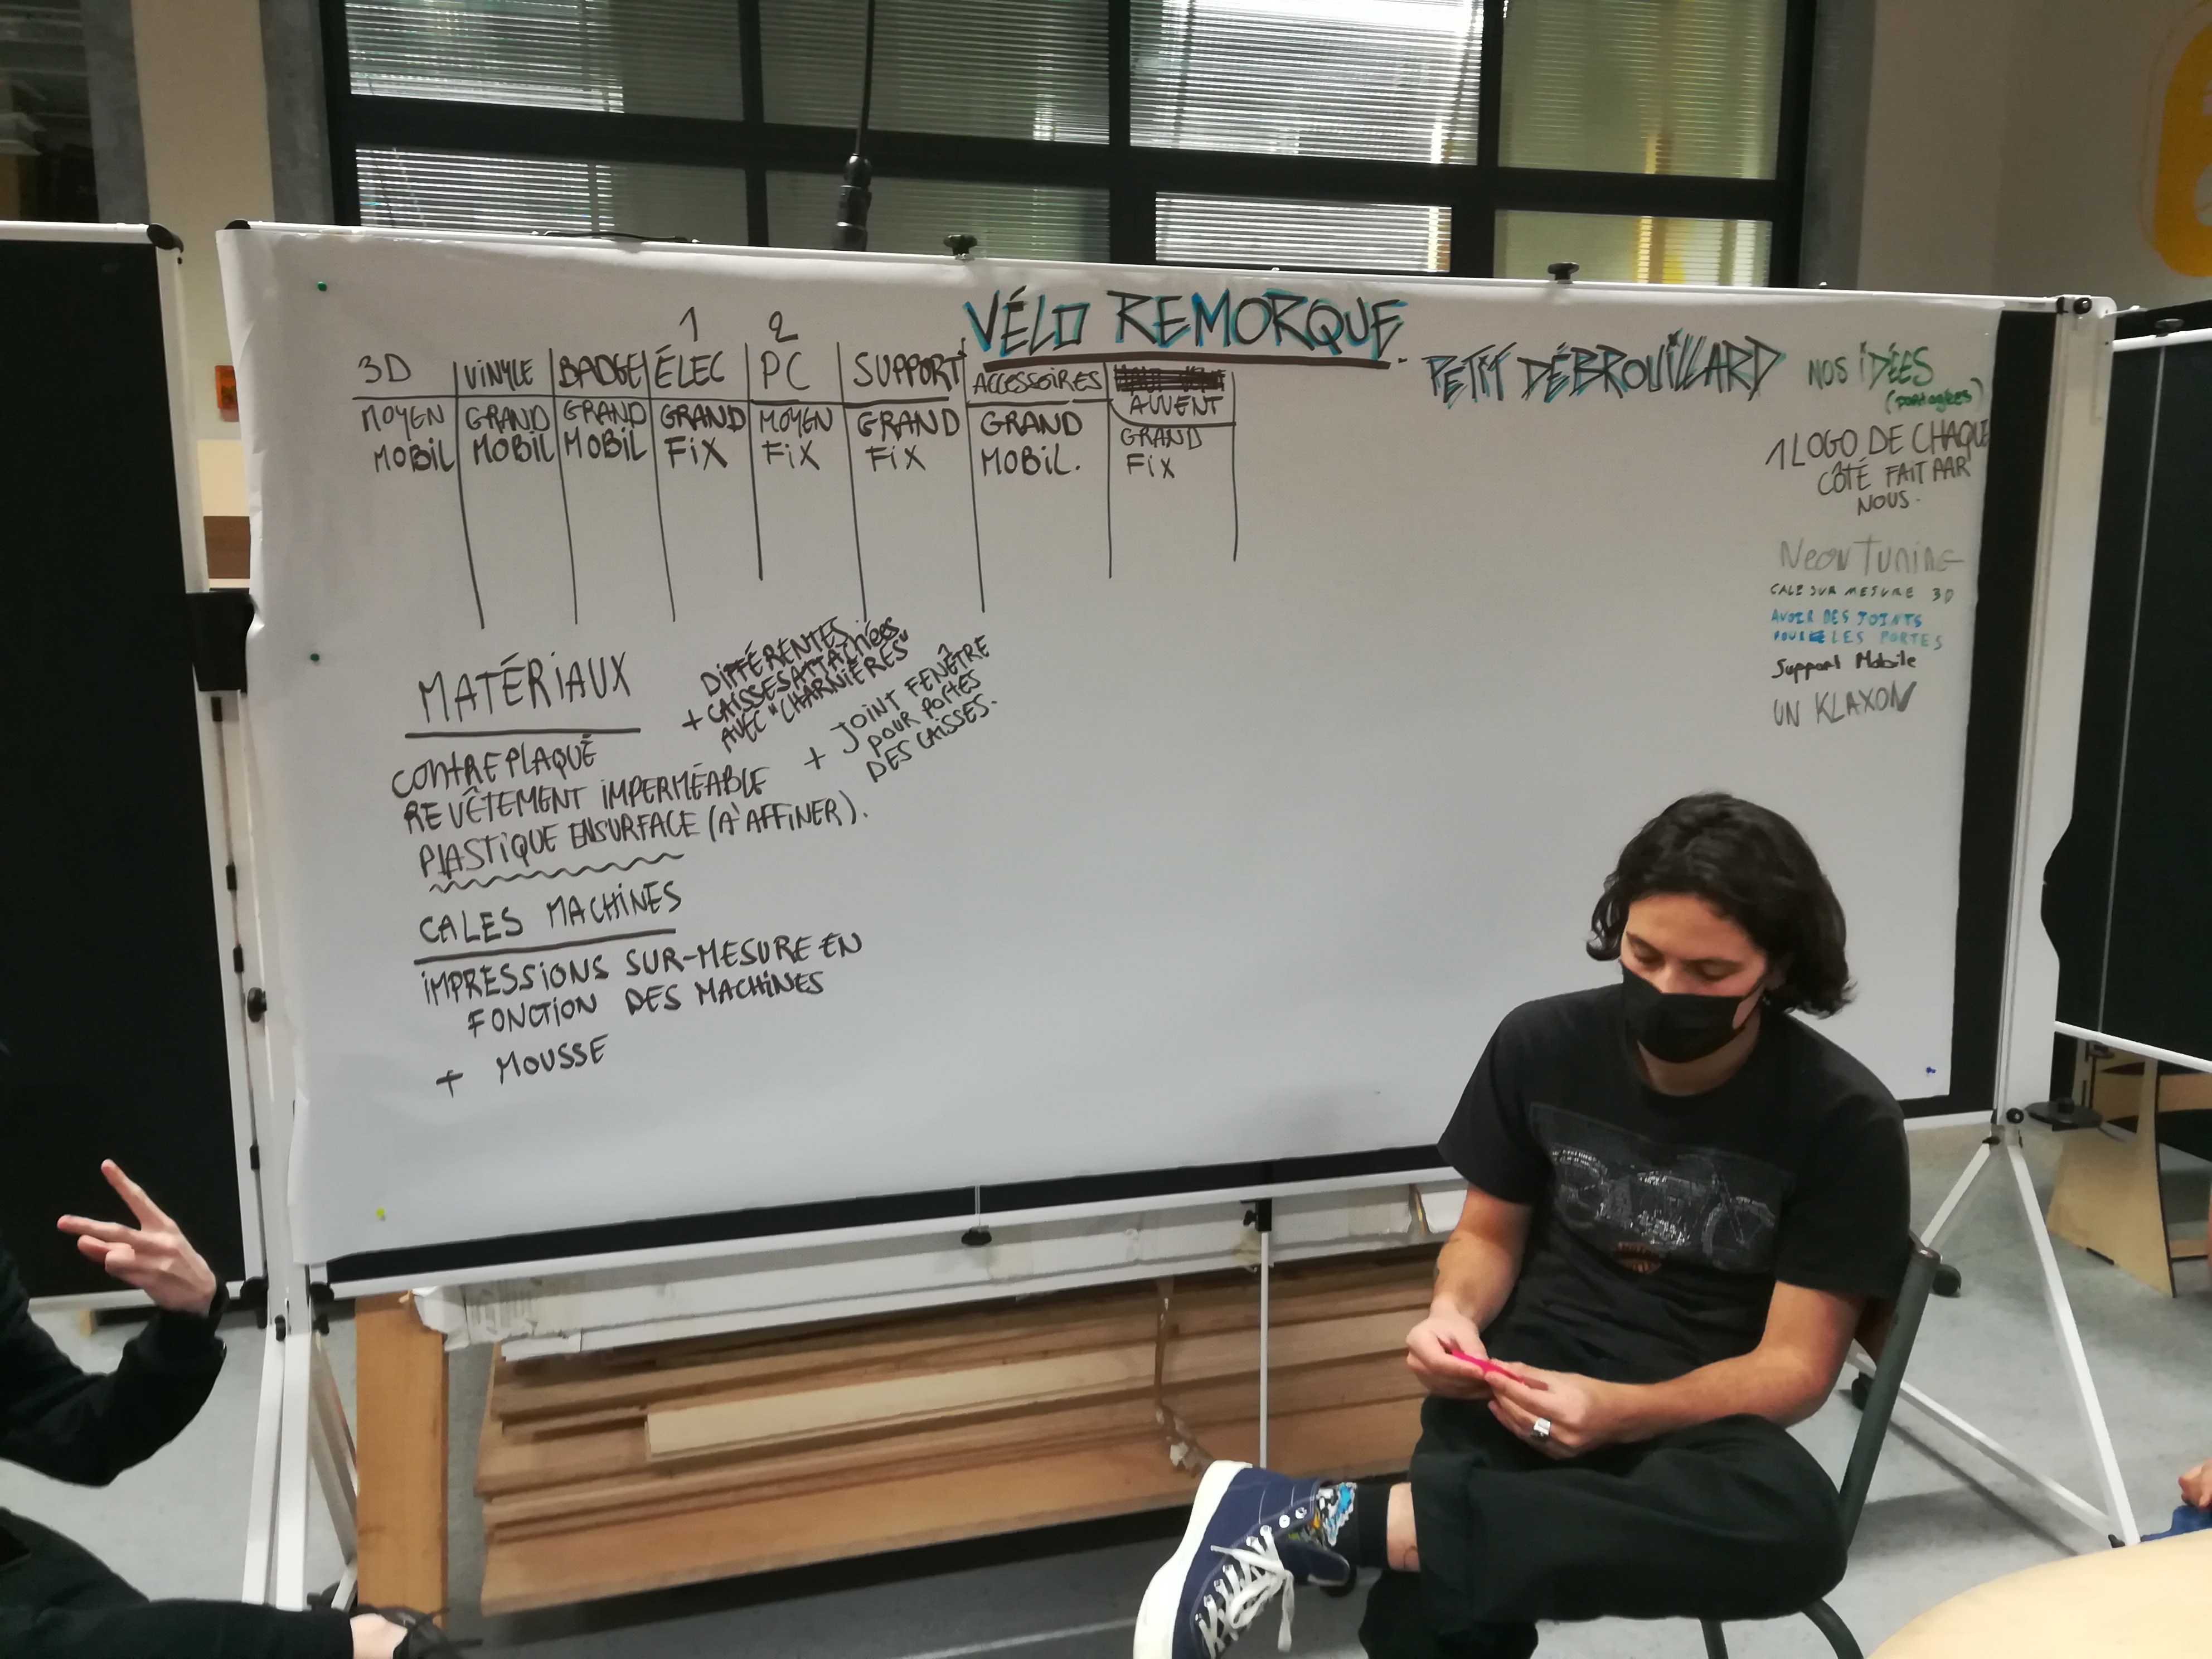 VÉLO REMORQUE
PETIT DÉBROUILLARD
1 2
3D VINYLE BADGE ÉLEC PC SUPPORT ACCESSOIRES AUVENT
MOYEN GRAND GRAND GRAND MOYEN GRAND GRAND GRAND
MOBIL MOBIL MOBIL FIX FIX FIX MOBIL. FIX
MATÉRIAUX
CONTREPLAQUÉ
REVÊTEMENT IMPERMÉABLE
PLASTIQUE EN SURFACE (A AFFINER).
DIFFÉRENTES
+ CAISSES ATTACHÉES
AVEC "CHARNIÈRES"
+ JOINT FENÊTRE
POUR PORTES
DES CAISSES.
CALES MACHINES
IMPRESSIONS SUR-MESURE EN
FONCTION DES MACHINES
+ MOUSSE
NOS IDÉES
(partagées)
1 LOGO DE CHAQUE
CÔTÉ FAIT PAR
NOUS.
Neon Tuning
CALE SUR MESURE 3D
AVOIR DES JOINTS
POUR LES PORTES
Support Mobile
UN KLAXON